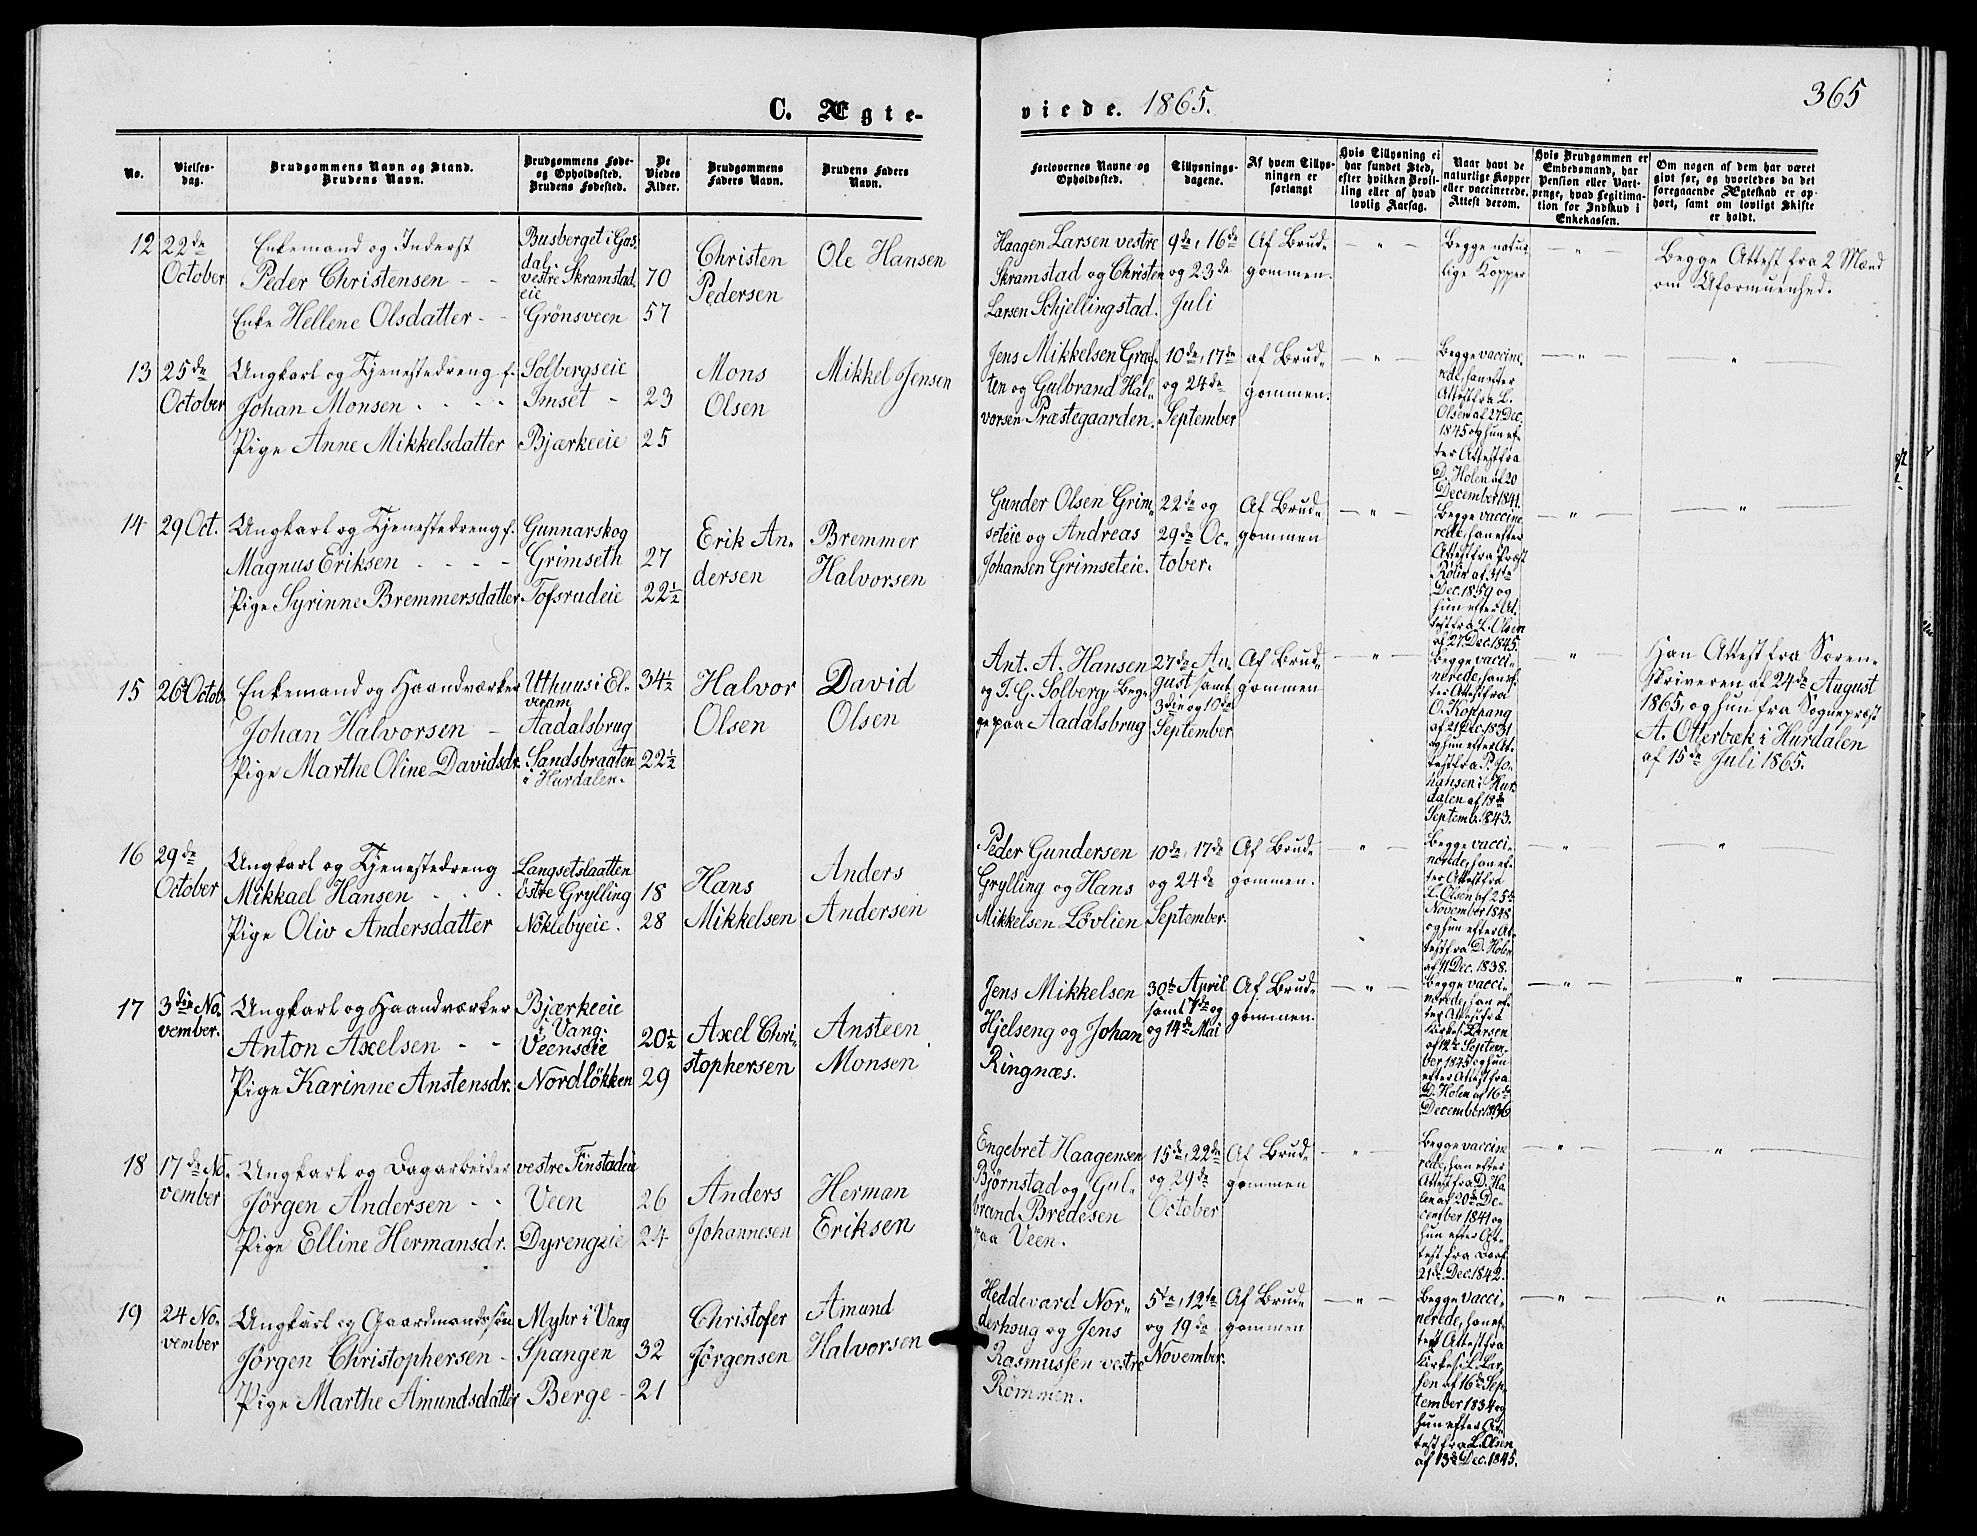 C. Ægte-
viede. 1865.
365
No.
Vielses-
dag.
Brudgommens Navn og Stand.
Brudens Navn.
Brudgommens Føde-
og Opholdssted.
Brudens Fødested.
De
Viedes
Alder.
Brudgommens
Faders Navn.
Brudens Faders
Navn.
Forlovernes Navne og
Opholdssted.
Tillysnings-
dagene.
Af hvem Tillys-
ningen er
forlangt
Hvis Tillysning ei
har fundet Sted,
efter hvilken Bevil-
ling eller af hvad
lovlig Aarsag.
Naar havt de
naturlige Kopper
eller vaccinerede.
Attest derom.
Hvis Brudgommen er
Embedsmand, har
Pension eller Vart-
penge, hvad Legitima-
tion for Indskud i
Enkekassen.
Om nogen af dem har været
givt før, og hvorledes da det
foregaaende Ægteskab er op-
hørt, samt om lovligt Skifte
er holdt.
12
22de
October
Enkemand og Inderst
Peder Christensen - -
Enke Hellene Olsdatter - -
Busberget i Gas
dal
vestre Skramstad
eie
Grönsveen
70
57
Christen
Pedersen
Ole Hansen
Haagen Larsen vestre
Skramstad og Christen
Larsen Schjellingstad.
9de, 16de
og 23de
Juli
Af Brud-
gommen.
— " —
Begge natur
lige Kopper
— " —
Begge Attest fra 2 Mænd
om Uformuenhed.
13
25de
October
Ungkarl og Tjenestedreng f.
Johan Monsen - - - -
Pige Anne Mikkelsdatter
Solbergseie
Imset -
Bjærkeeie
23
25
Mons
Olsen
Mikkel Jensen
Jens Mikkelsen Graf-
ten og Gulbrand Hal-
vorsen Præstegaarden.
10de, 17de
og 24de
September
af Brud-
gommen.
— " —
Begge vaccine
rede, han efter
Attest fra L.
Olsen af 27 Dec.
1845 og hun ef-
ter Attest fra
D. Holen af 20
December 1841.
— " —
"
14
29 Oct.
Ungkarl og Tjenestedreng f.
Magnus Eriksen - - - -
Pige Syrinne Bremmersdatter
Gunnarskog
Grimseth
Tofsrudeie
27
22½
Erik An-
dersen
Bremmer
Halvorsen
Gunder Olsen Grim-
seteie og Andreas
Johansen Grimseteie.
22de og
29de Oc-
tober.
Af Brud-
gommen
— " —
Begge vaccine
rede, han efter
Attest fra Præst
Rölin af 4de
Dec. 1859 og
hun efter At-
test fra L. Olsen
af 27 Dec. 1845.
— " —
"
15
26 Octob.
Enkemand og Haandværker
Johan Halvorsen -
Pige Marthe Oline Davidsdr.
Uthuus i El-
verum
Aadalsbrug
Sandsbraaten
i Hurdalen.
34½
22½
Halvor
Olsen
David
Olsen
Ant. A. Hansen
og T. G. Solberg Beg-
ge paa Aadalsbrug
27de Au-
gust samt
3die og 10de
September
Af Brud-
gommen
— " —
Begge vacci-
nerede, han ef-
ter Attest fra
O. Koppang
af 21 Dec. 1831
og hun efter At-
test fra P. Jo-
hansen i Hur-
dalen af 18de
Septemb. 1843.
— " —
Han Attest fra Soren-
skriveren af 24de August
1865, og hun fra Sognepræst
A. Otterbæk i Hurdalen
af 15de Juli 1865.
16
29de
October
Ungkarl og Tjenestedreng
Mikkael Hansen - - -
Pige Oliv Andersdatter
Langsetslaatten
östre Grylling
Nöklebyeie.
18
28
Hans
Mikkelsen
Anders
Andersen
Peder Gundersen
Grylling og Hans
Mikkelsen Løvlien
10de, 17de
og 24de
September.
Af Brud-
gommen.
— " —
Begge vacci-
nerede, han ef-
ter Attest fra
L. Olsen af 25de
November 1848
og hun efter At-
test fra D. Holen
af 11 Dec. 1838.
— " —
"
17
3die No-
vember.
Ungkarl og Haandværker
Anton Axelsen - -
Pige Karinne Anstensdr.
Bjærkeeie
i Vang.
Veenseie
Nordlökken
20½
29
Axel Chri-
stophersen
Ansteen
Monsen
Jens Mikkelsen
Hjelseng og Johan
Ringnæs.
30te April
samt 7de og
og 14de Mai
Af Brud-
gommen.
— " —
Begge vacci-
nerede, han ef-
ter Attest fra
Kirkes. Larsen
af 12te Septem-
ber 1845 og hun
efter Attest fra
D. Holen af 16de
December 1836
— " —
"
18
17de No-
vember
Ungkarl og Dagarbeider
Jørgen Andersen - -
Pige Elline Hermansdr.
vestre Finstadeie
Veen
Dyrengeie
26
24
Anders
Johannesen
Herman
Eriksen
Engebret Haagensen
Bjørnstad og Gul-
brand Bredesen
paa Veen.
15de, 22de
og 29de
October
Af Brud-
gommen
— " —
Begge vaccine
rede, han efter
Attest fra D. Ho-
len af 20de De-
cember 1841 og
hun efter At-
test fra
21de Dec. 1842.
— " —
"
19
24 No-
vember
Ungkarl og Gaardmandssøn
Jörgen Christophersen -
Pige Marthe Amundsdatter
Myhr i Vang
Spangen
Berge -
32
21
Christofer
Jörgensen
Amund
Halvorsen
Heddevard Nor-
derhoug og Jens
Rasmussen vestre
Rømmen.
5te, 12de
og 19de
November.
Af Brud-
gommen
— " —
Begge vacci-
nerede, han ef-
ter Attest fra
Kirkes. L. Lar-
sen af 16de Sep-
tember 1834 og
hun efter At-
test fra L. Olsen
af 13de Dec. 1845.
— " —
"